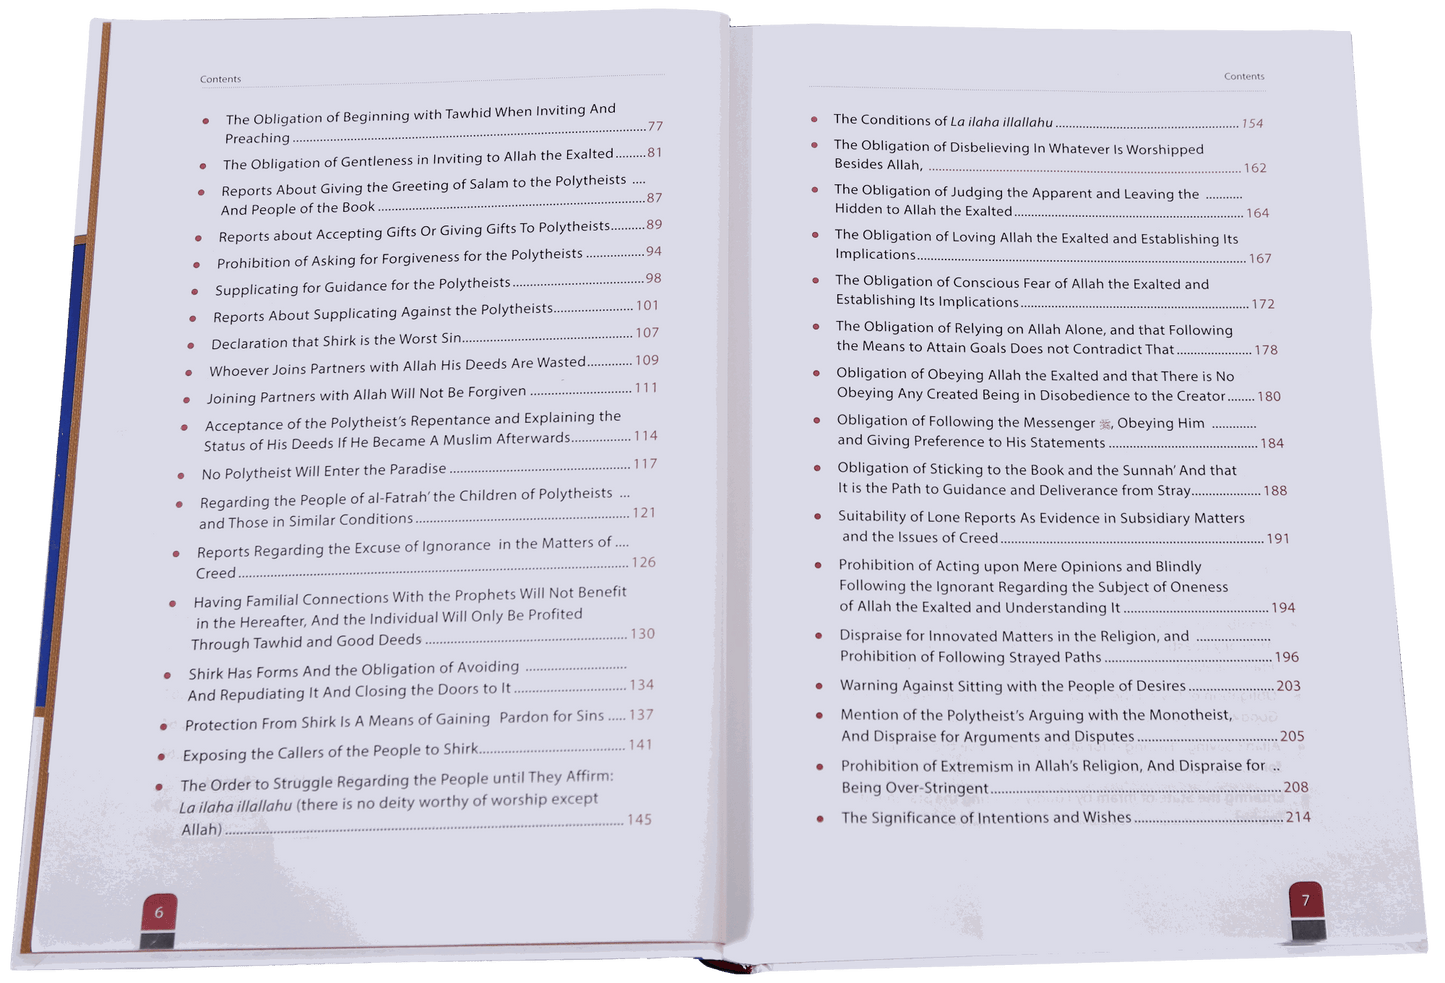 Contents
• The Obligation of Beginning with Tawhid When Inviting And
Preaching ........ 77
• The Obligation of Gentleness in Inviting to Allah the Exalted ........ 81
• Reports About Giving the Greeting of Salam to the Polytheists ....
And People of the Book ........ 87
• Reports about Accepting Gifts Or Giving Gifts To Polytheists ........ 89
• Prohibition of Asking for Forgiveness for the Polytheists ........ 94
• Supplicating for Guidance for the Polytheists ........ 98
• Reports About Supplicating Against the Polytheists ........ 101
• Declaration that Shirk is the Worst Sin ........ 107
• Whoever Joins Partners with Allah His Deeds Are Wasted ........ 109
• Joining Partners with Allah Will Not Be Forgiven ........ 111
• Acceptance of the Polytheist's Repentance and Explaining the
Status of His Deeds If He Became A Muslim Afterwards ........ 114
• No Polytheist Will Enter the Paradise ........ 117
• Regarding the People of al-Fatrah' the Children of Polytheists ...
and Those in Similar Conditions ........ 121
• Reports Regarding the Excuse of Ignorance in the Matters of ....
Creed ........ 126
• Having Familial Connections With the Prophets Will Not Benefit
in the Hereafter, And the Individual Will Only Be Profited
Through Tawhid and Good Deeds ........ 130
• Shirk Has Forms And the Obligation of Avoiding ........
And Repudiating It And Closing the Doors to It ........ 134
• Protection From Shirk Is A Means of Gaining Pardon for Sins ..... 137
• Exposing the Callers of the People to Shirk ........ 141
• The Order to Struggle Regarding the People until They Affirm:
La ilaha illallahu (there is no deity worthy of worship except
Allah) ........ 145
6
Contents
• The Conditions of La ilaha illallahu ........ 154
• The Obligation of Disbelieving In Whatever Is Worshipped
Besides Allah, ........ 162
• The Obligation of Judging the Apparent and Leaving the ........
Hidden to Allah the Exalted ........ 164
• The Obligation of Loving Allah the Exalted and Establishing Its
Implications ........ 167
• The Obligation of Conscious Fear of Allah the Exalted and
Establishing Its Implications ........ 172
• The Obligation of Relying on Allah Alone, and that Following
the Means to Attain Goals Does not Contradict That ........ 178
• Obligation of Obeying Allah the Exalted and that There is No
Obeying Any Created Being in Disobedience to the Creator ........ 180
• Obligation of Following the Messenger ﷺ, Obeying Him ........
and Giving Preference to His Statements ........ 184
• Obligation of Sticking to the Book and the Sunnah' And that
It is the Path to Guidance and Deliverance from Stray ........ 188
• Suitability of Lone Reports As Evidence in Subsidiary Matters
and the Issues of Creed ........ 191
• Prohibition of Acting upon Mere Opinions and Blindly
Following the Ignorant Regarding the Subject of Oneness
of Allah the Exalted and Understanding It ........ 194
• Dispraise for Innovated Matters in the Religion, and ........
Prohibition of Following Strayed Paths ........ 196
• Warning Against Sitting with the People of Desires ........ 203
• Mention of the Polytheist's Arguing with the Monotheist,
And Dispraise for Arguments and Disputes ........ 205
• Prohibition of Extremism in Allah's Religion, And Dispraise for ..
Being Over-Stringent ........ 208
• The Significance of Intentions and Wishes ........ 214
7